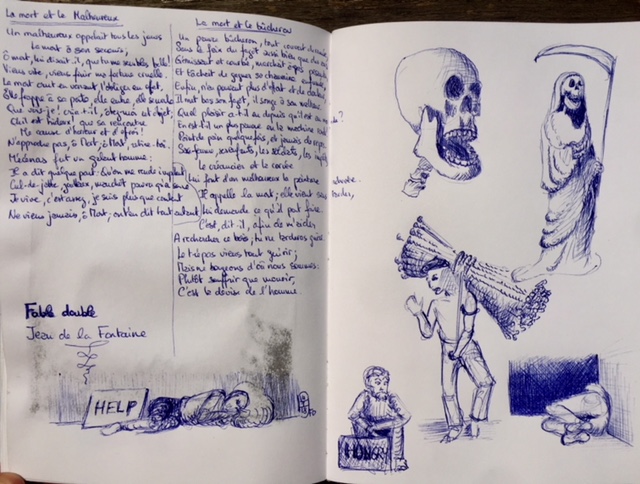 La mort et le Malheureux
Un malheureux appelait tous les jours
La mort à son secours;
Ô mort, lui disait-il, que tu me sembles belle!
Viens vite, viens finir ma fortune cruelle.
La mort crut en venant l'obliger en effet,
Elle frappe à sa porte, elle entre, elle se montre
Que vois-je! cria-t-il, ôtez-moi cet objet,
Qu'il est hideux! que sa rencontre
Me cause d'horreur et d'effroi!
N'approche pas, ô Mort, ô Mort, retire-toi.
Mécénas fut un galant homme:
Il a dit quelque part: Qu'on me rende impotent
Cul-de-jatte, goutteux, manchot, pourvu qu'en somme
Je vive, c'est assez, je suis plus que content
Ne viens jamais, ô Mort, on t'en dit tout autant.
La mort et le bûcheron
Un pauvre bûcheron, tout couvert de
Sous le faix du fagot aussi bien que des
Gémissant et courbé, marchait à pas
Et tâchait de gagner sa chaumine
Enfin, n'en pouvant plus d'effort et de douleur
Il met bas son fagot, il songe à son malheur
Quel plaisir a-t-il eu depuis qu'il est au
En est-il un plus pauvre en la machine
Point de pain quelquefois, et jamais de repos
Sa femme, ses enfants, les soldats, les impôts
Le créancier et la corvée
Lui font d'un malheureux la peinture
Il appelle la mort; elle vient sans
Lui demande ce qu'il faut faire.
C'est, dit-il, afin de m'aider
A recharger ce bois; tu ne tarderas guère
Le trépas vient tout guérir;
Mais ne bougeons d'où nous sommes:
Plutôt souffrir que mourir,
C'est la devise de l'homme.
Fable double
Jean de la Fontaine
HELP
HUNGRY